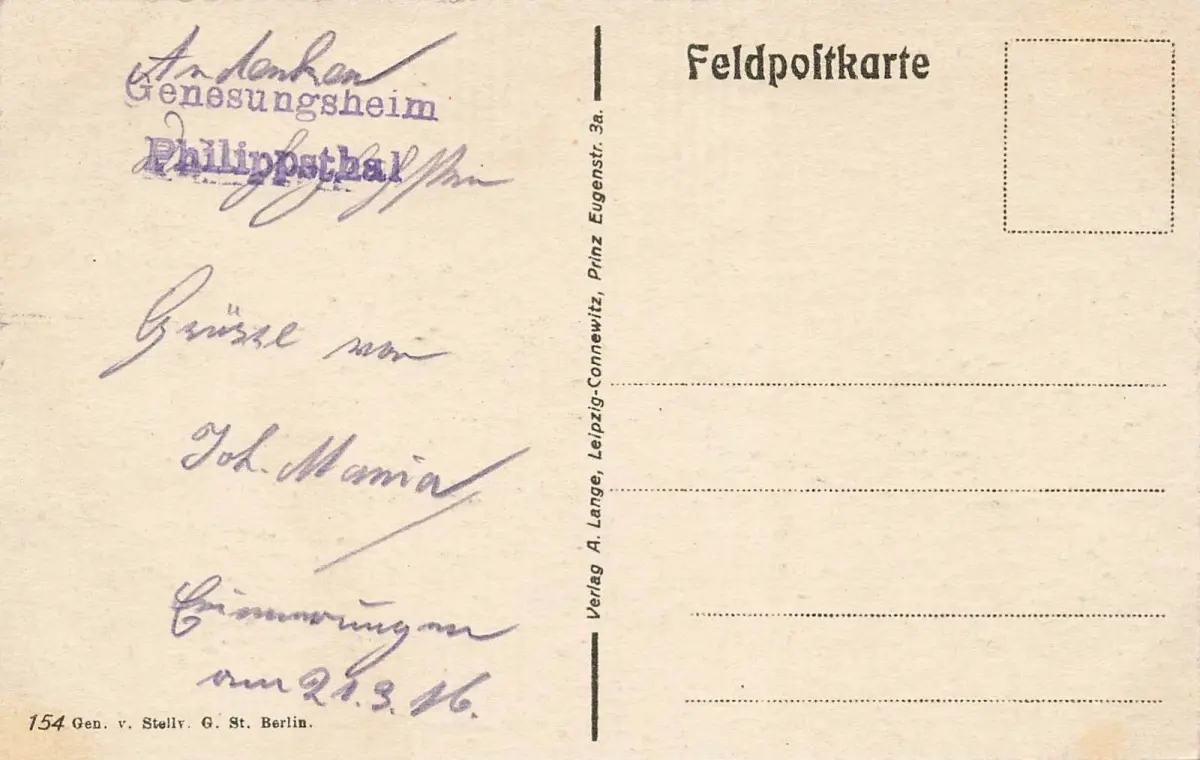 Andenken
Genesungsheim
Philippsthal
Grüsse von
Joh. Mania
Erinnerungen
am 21.3.16.
154 Gen. v. Stellv. G. St. Berlin.
Verlag A. Lange, Leipzig-Connewitz, Prinz Eugenstr. 3a.
Feldpoſtkarte